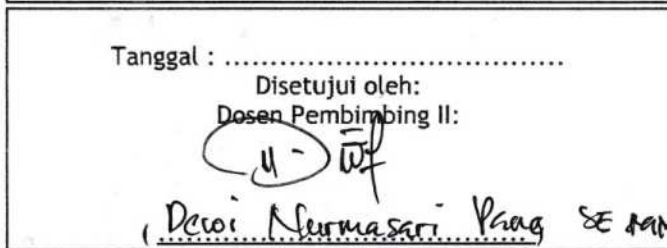 Tanggal : ....................................
Disetujui oleh:
Dosen Pembimbing II:
( Dewi Nurmasari Pang SE